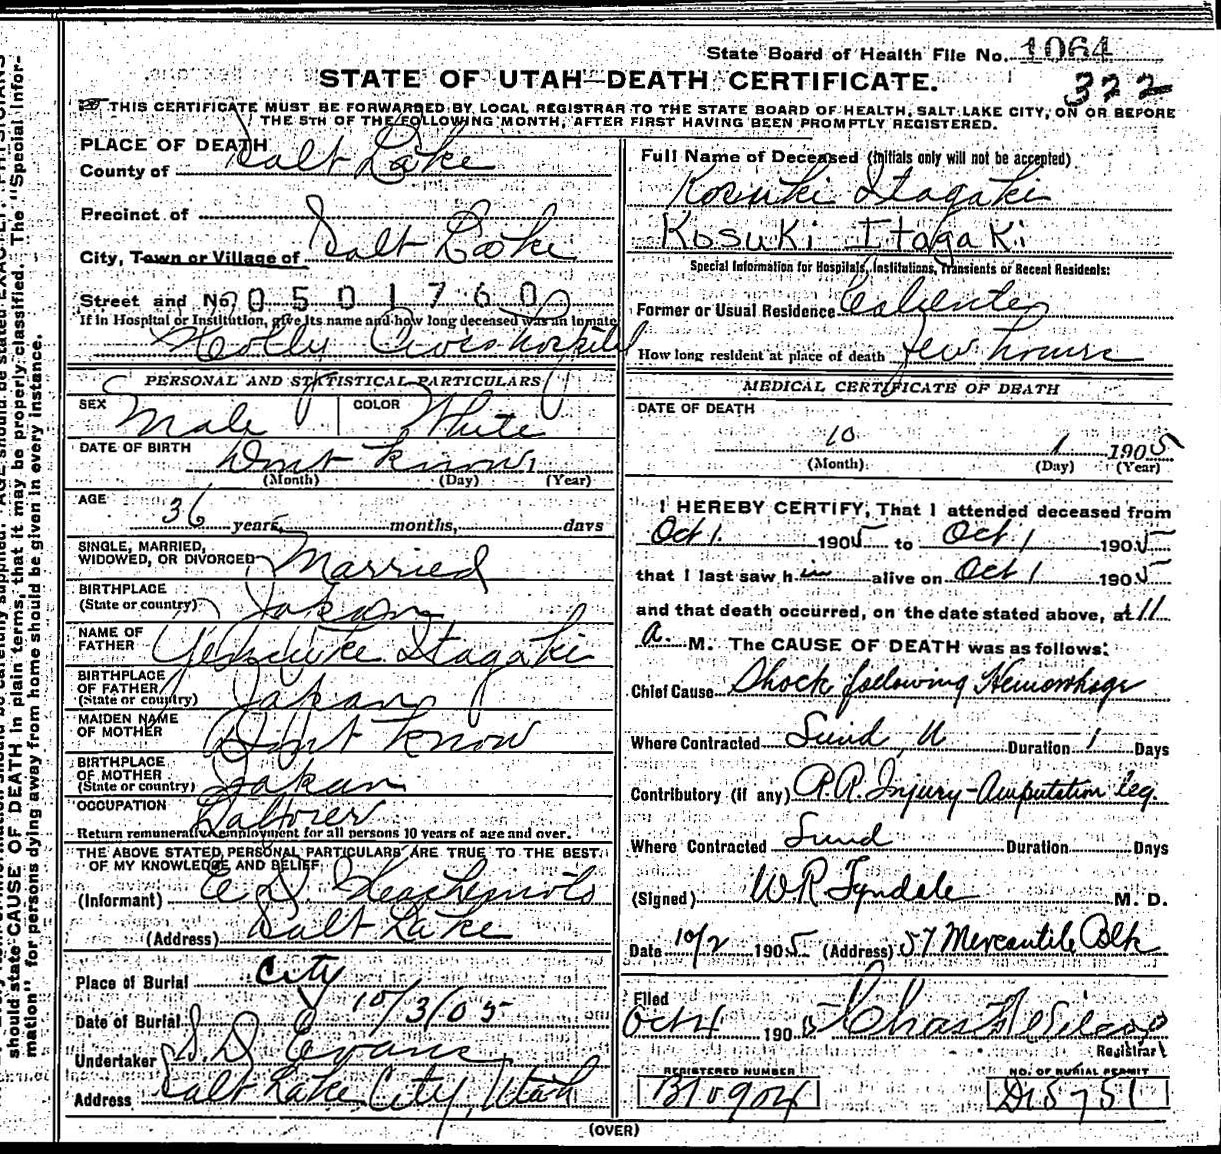 State Board of Health File No. 1064
322
STATE OF UTAH—DEATH CERTIFICATE.
THIS CERTIFICATE MUST BE FORWARDED BY LOCAL REGISTRAR TO THE STATE BOARD OF HEALTH, SALT LAKE CITY, ON OR BEFORE
THE 5TH OF THE FOLLOWING MONTH, AFTER FIRST HAVING BEEN PROMPTLY REGISTERED.
PLACE OF DEATH
County of Salt Lake
Precinct of
City, Town or Village of Salt Lake
Street and No. 0501760
If in Hospital or Institution, give its name and how long deceased was an inmate
Holly Cross hospital
PERSONAL AND STATISTICAL PARTICULARS
SEX Male COLOR White
DATE OF BIRTH Dont know
(Month) (Day) (Year)
AGE 36 years, months, days
SINGLE, MARRIED,
WIDOWED, OR DIVORCED Married
BIRTHPLACE
(State or country) Japan
NAME OF
FATHER Itagaki
BIRTHPLACE
OF FATHER
(State or country) Japan
MAIDEN NAME
OF MOTHER Dont know
BIRTHPLACE
OF MOTHER
(State or country) Japan
OCCUPATION Laborer
Return remunerative employment for all persons 10 years of age and over.
THE ABOVE STATED PERSONAL PARTICULARS ARE TRUE TO THE BEST
OF MY KNOWLEDGE AND BELIEF
(Informant) E D
(Address) Salt Lake
Place of Burial City
Date of Burial 10/3/05
Undertaker S.D. Evans
Address Salt Lake City, Utah
Full Name of Deceased (Initials only will not be accepted)
Kosuki Itagaki
Kosuki Itagaki
Special Information for Hospitals, Institutions, Transients or Recent Residents:
Former or Usual Residence Caliente
How long resident at place of death few hours
MEDICAL CERTIFICATE OF DEATH
DATE OF DEATH
10 1 1905
(Month) (Day) (Year)
I HEREBY CERTIFY, That I attended deceased from
Oct 1. 1905 to Oct. 1 1905
that I last saw him alive on Oct 1 1905
and that death occurred, on the date stated above, at 11
a. M. The CAUSE OF DEATH was as follows:
Chief Cause Shock following Hemorrhage
Where Contracted Lund, U Duration 1 Days
Contributory (if any) R.R. Injury-Amputation leg.
Where Contracted Lund Duration Days
(Signed) W.R. Tyndale M. D.
Date 10/2 1905 (Address) 57 Mercantile Blk
Filed
Oct 4 1905 Chas
Registrar
REGISTERED NUMBER
B10904
NO. OF BURIAL PERMIT
D15751
(OVER)
should state CAUSE OF DEATH in plain terms, that it may be properly classified. The "Special Infor-
mation" for persons dying away from home should be given in every instance.